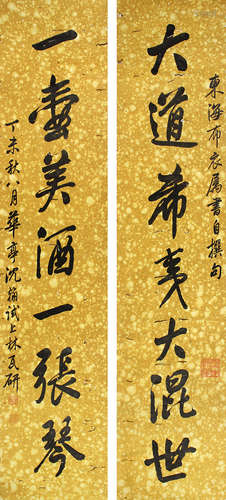 東海布衣属書自撰句
大道希夷大混世
一壺美酒一張琴
丁未秋八月華亭沈銛試上林瓦研